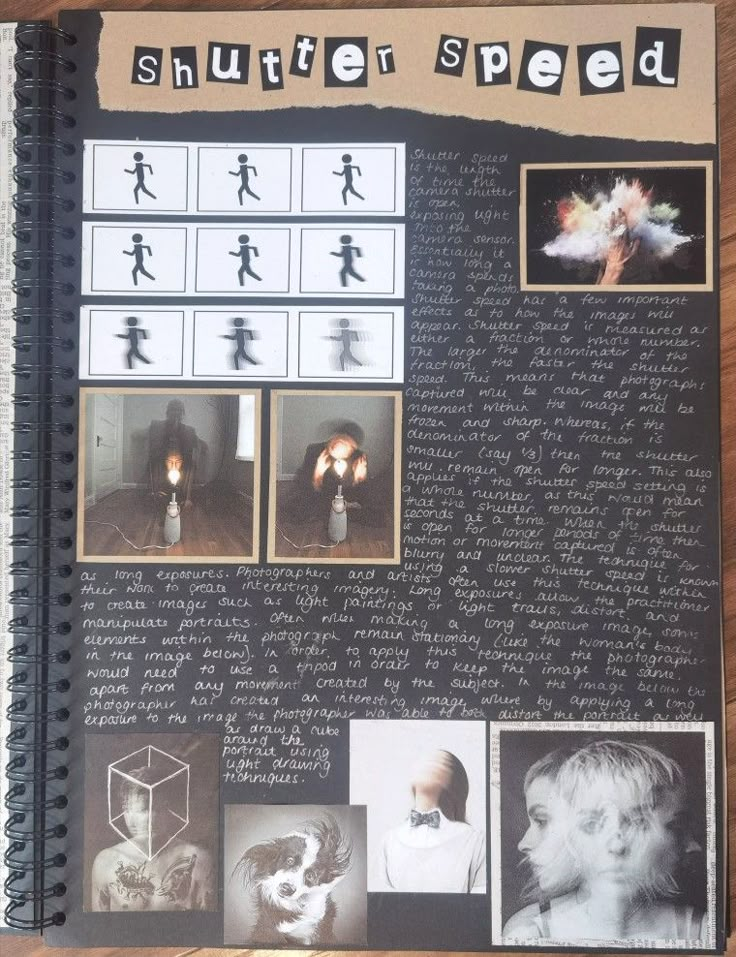 Shutter Speed
Shutter speed
is the length
of time the
camera shutter
is open,
exposing light
into the
camera sensor.
Essentially it
is how long a
camera spends
taking a photo.
Shutter speed has a few important
effects as to how the images will
appear. Shutter speed is measured as
either a fraction or whole number.
The larger the denominator of the
fraction, the faster the shutter
speed. This means that photographs
captured will be clear and any
movement within the image will be
frozen and sharp. Whereas, if the
denominator of the fraction is
smaller (say 1/3) then the shutter
will remain open for longer. This also
applies if the shutter speed setting is
a whole number, as this would mean
that the shutter remains open for
seconds at a time. When the shutter
is open for longer periods of time then
motion or movement captured is often
blurry and unclear. The technique for
using a slower shutter speed is known
as long exposures. Photographers and artists often use this technique within
their work to create interesting imagery. Long exposures allow the practitioner
to create images such as light paintings or light trails, distort and
manipulate portraits. Often when making a long exposure image, some
elements within the photograph remain stationary (like the woman's body
in the image below). In order to apply this technique the photographer
would need to use a tripod in order to keep the image the same,
apart from any movement created by the subject. In the image below the
photographer has created an interesting image where by applying a long
exposure to the image the photographer was able to both distort the portrait as well
as draw a cube
around the
portrait using
light drawing
techniques.